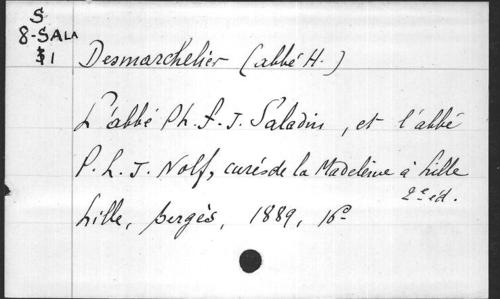 S
8-SALA
$1
Desmarchelier (abbé H.)
L'abbé Ph. F. J. Saladin, et l'abbé
P. L. J. Nolf, curés de la Madeleine à Lille
2e éd.
Lille, Bergès, 1889, 16°